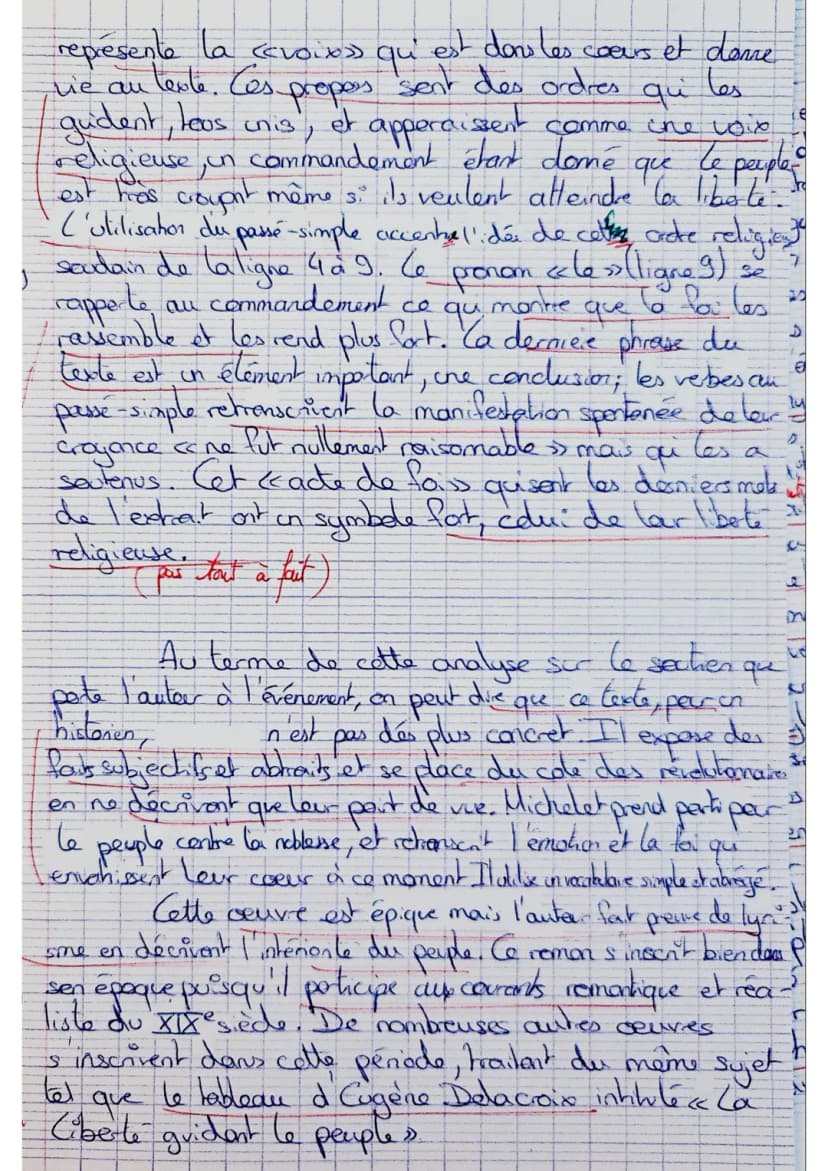 représente la «voix» qui est dans les coeurs et donne
vie au texte. Ces propos sont des ordres qui les
guident, tous unis, et apparaissent comme une voix
religieuse, un commandement étant donné que le peuple
est très croyant même si ils veulent atteindre la liberté.
L'utilisation du passé-simple accentue l'idée de cet ordre religieux
soudain de la ligne 4 à 9. Le pronom «le» (ligne 9) se
rapporte au commandement ce qui montre que la foi les
rassemble et les rend plus fort. La dernière phrase du
texte est un élément important, une conclusion; les verbes au
passé-simple retranscrivent la manifestation spontanée de leur
croyance «ne fut nullement raisonnable» mais qui les a
soutenus. Cet «acte de foi» qui sont les derniers mots
de l'extrait ont un symbole fort, celui de leur liberté
religieuse.
(pas tout à fait)
Au terme de cette analyse sur le soutien que
porte l'auteur à l'événement, on peut dire que ce texte, pour un
historien, n'est pas des plus concret. Il expose des
faits subjectifs et abtraits et se place du coté des révolutionnaires
en ne décrivant que leur point de vue. Michelet prend parti pour
le peuple contre la noblesse, et retranscrit l'émotion et la foi qui
envahissent leur coeur à ce moment Il utilise un vocabulaire simple et abrégé.
Cette oeuvre est épique mais l'auteur fait preuve de lyri-
sme en décrivent l'interiorité du peuple. Ce roman s'inscrit bien dans
son époque puisqu'il participe aux courants romantique et réa-
liste du XIXe siècle. De nombreuses autres oeuvres
s'inscrivent dans cette période, traitant du même sujet
tel que le tableau d'Eugène Delacroix intitulé «La
Liberté guidant le peuple».